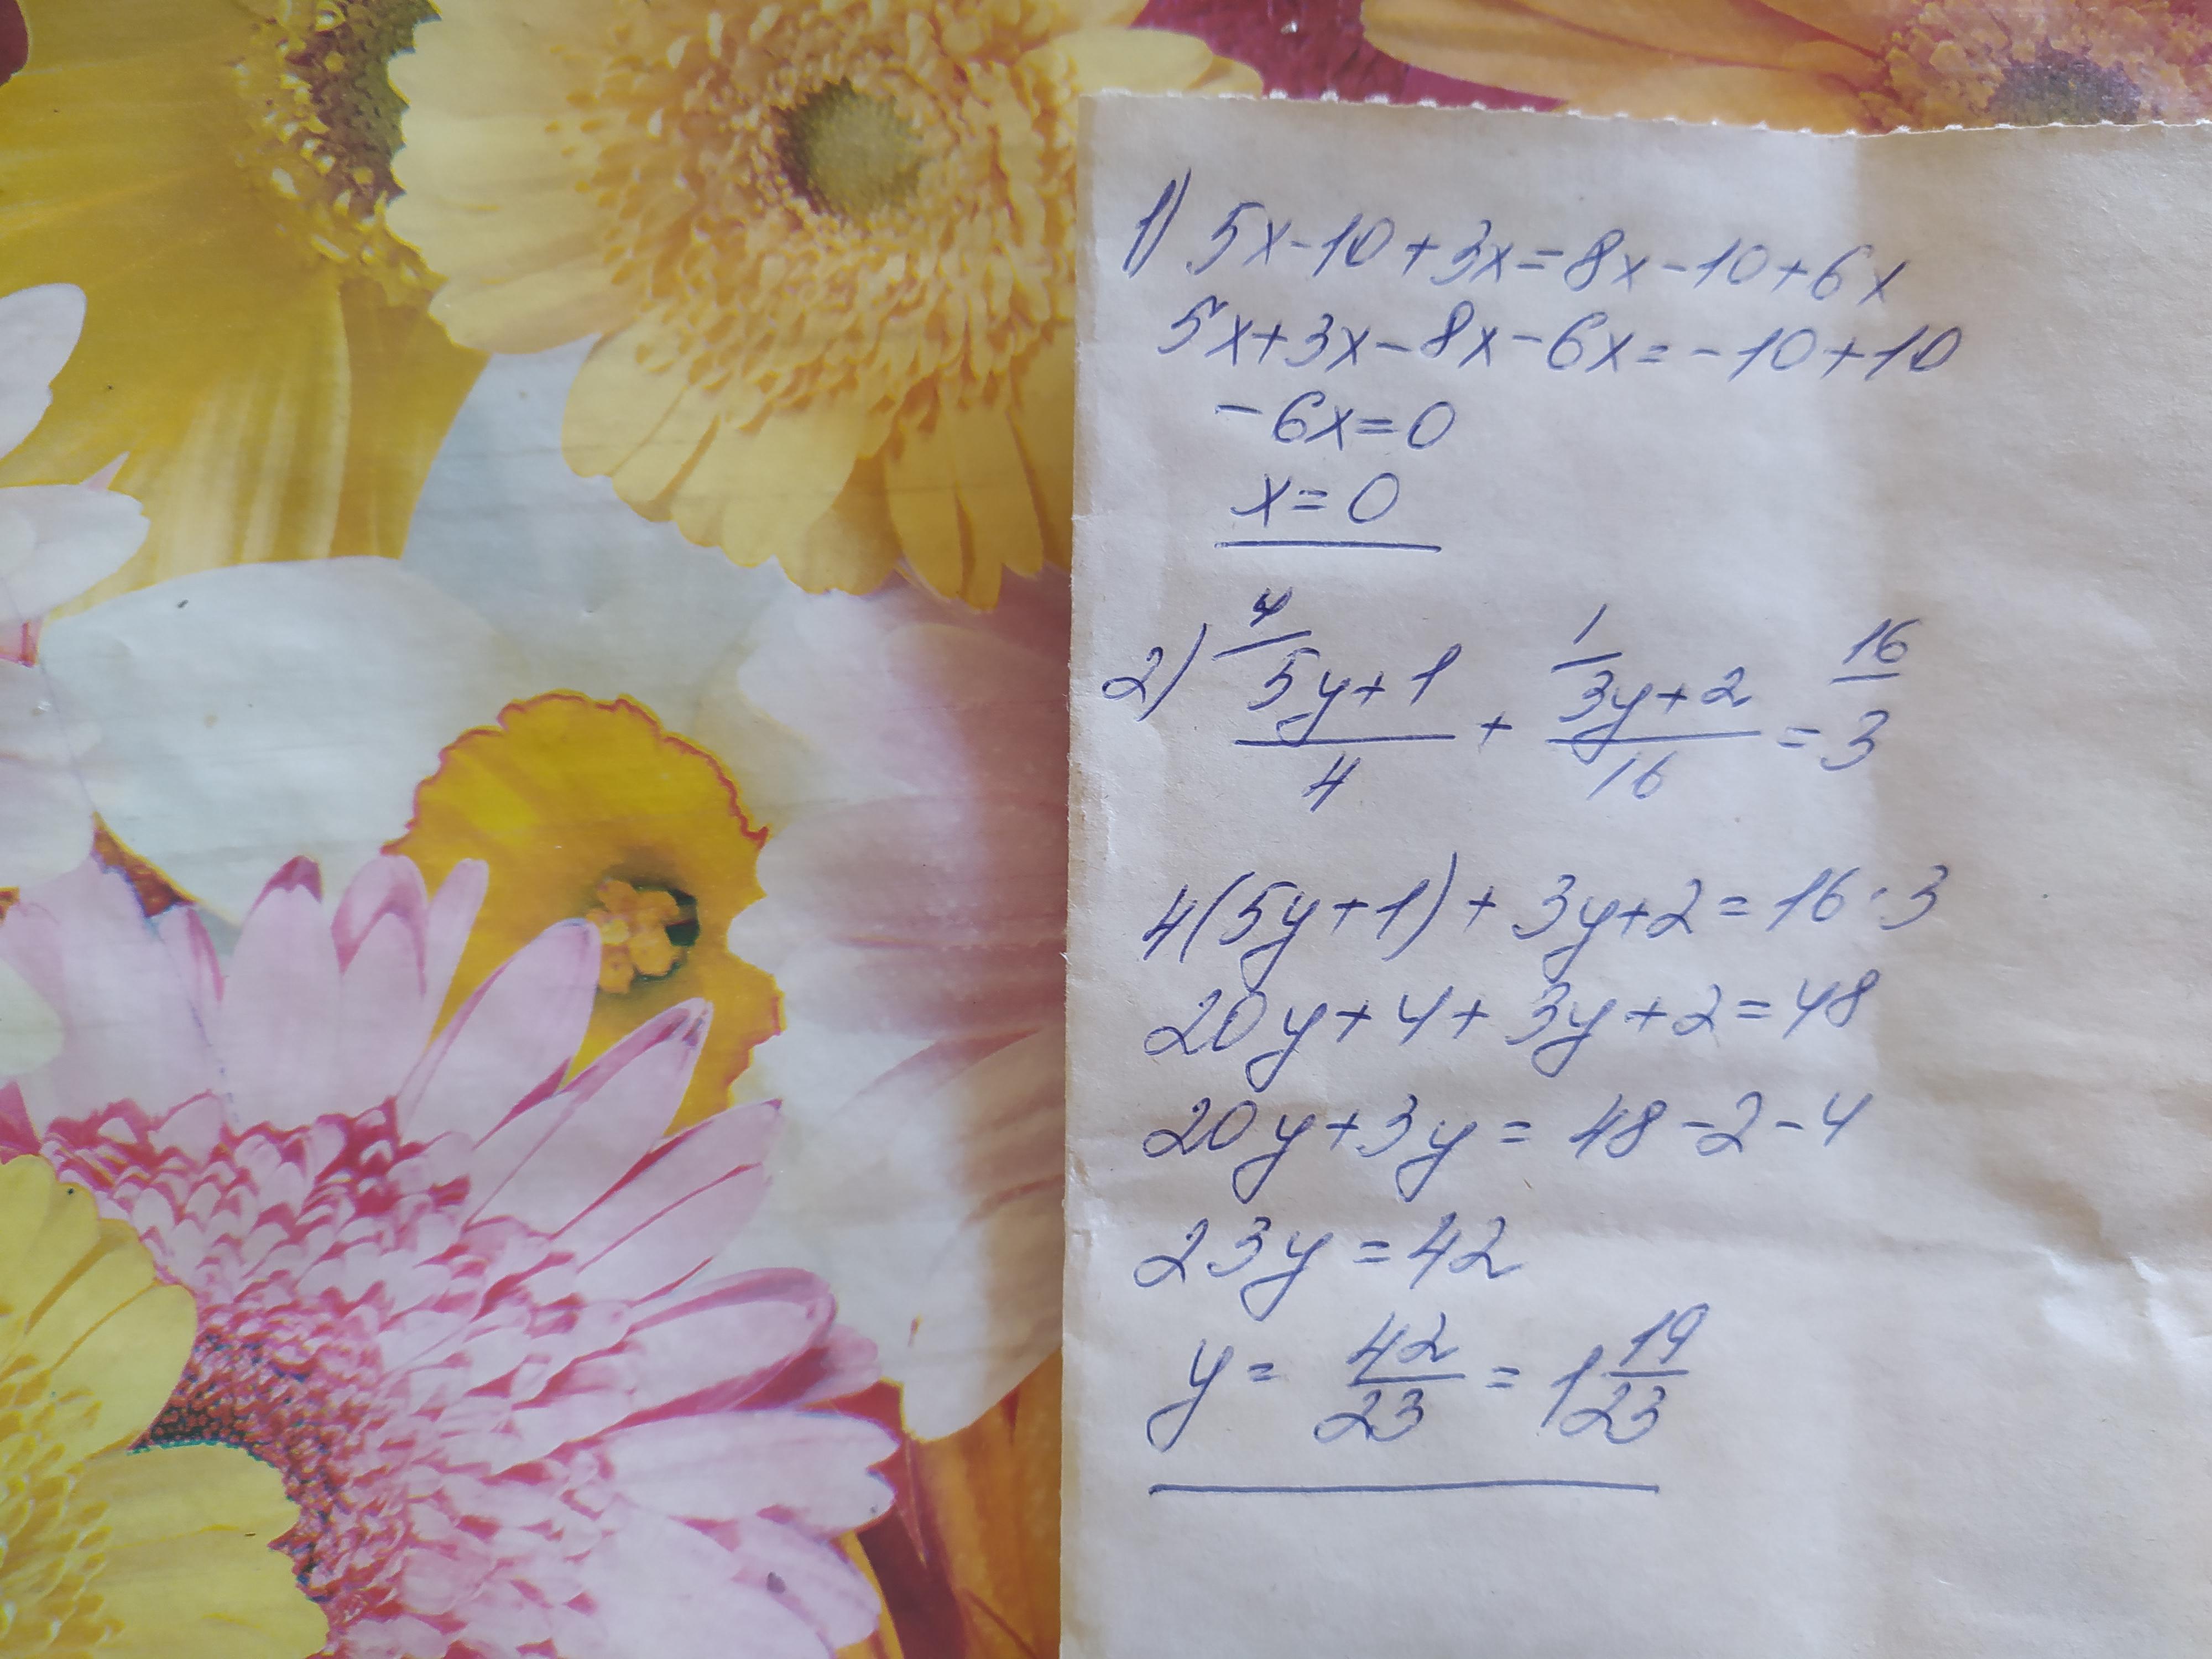 1) 5x-10+3x=8x-10+6x
5x+3x-8x-6x=-10+10
-6x=0
x=0
4 1 16
2) 5y+1 3y+2
+ =3
4 16
4(5y+1)+3y+2=16·3
20y+4+3y+2=48
20y+3y=48-2-4
23y=42
y= 42/23 = 1 19/23